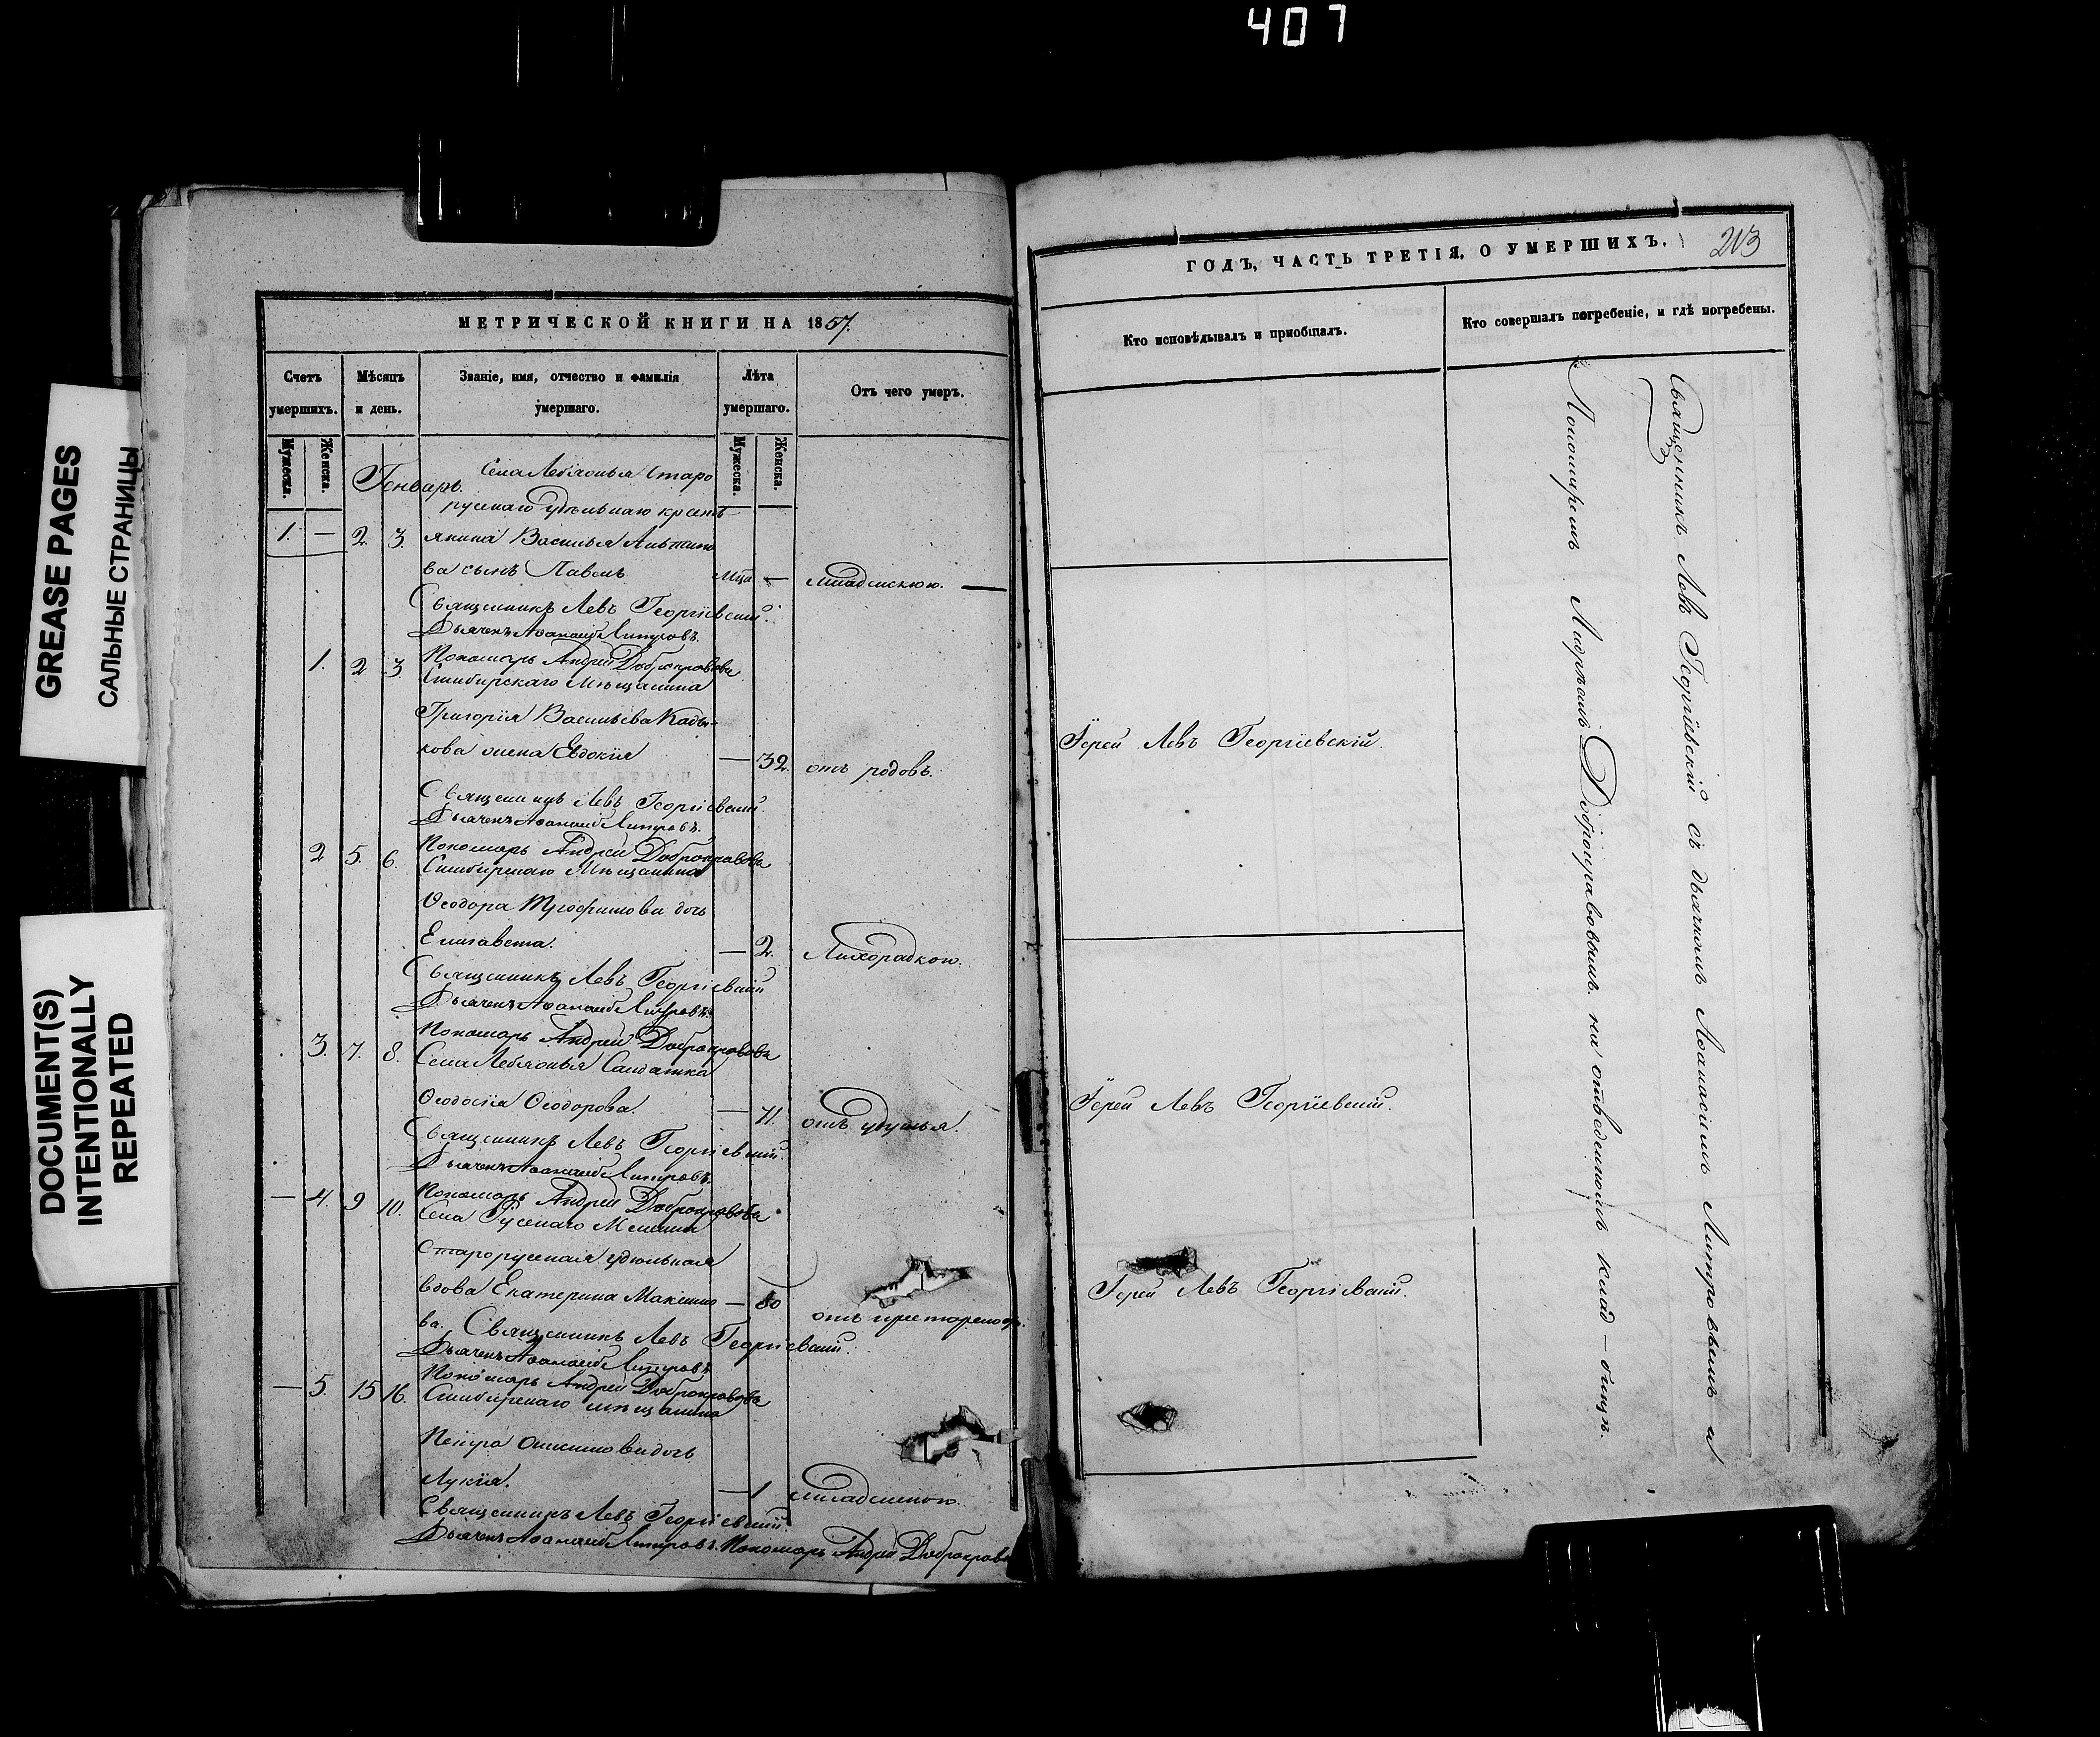 407
GREASE PAGES
САЛЬНЫЕ СТРАНИЦЫ
DOCUMENT(S)
INTENTIONALLY
REPEATED
МЕТРИЧЕСКОЙ КНИГИ НА 1857.
Счетъ умершихъ.
Мѣсяцъ и день.
Званіе, имя, отчество и фамилія умершаго.
Лѣта умершаго.
Отъ чего умеръ.
Мужеска.
Женска.
Мужеска.
Женска.
Генварь.
Села Лебяжья Старо
русскаго удѣльнаго кресть
1. — 2. 3. янина Василья
ва сынъ Павелъ — младенскою. —
Священникъ Левъ Георгіевскій.
Дьячекъ Аѳанасій
1. 2 3. Пономарь Андрей Добронравовъ
Симбирскаго Мѣщанина
Григорія Васильева Кады-
кова жена Евдокия — 32. отъ родовъ.
Священникъ Левъ Георгіевский.
Дьячекъ Аѳанасій
2 5. 6. Пономарь Андрей Добронравовъ
Симбирскаго Мѣщанина
Ѳеодора Трофимова дочь
Елизавета. — 2. Лихорадкою.
Священникъ Левъ Георгіевский
Дьячекъ Аѳанасій
3. 7. 8. Пономарь Андрей Добронравовъ
Села Лебяжья Солдатка
Ѳеодосія Ѳеодорова. — 71. отъ удушья.
Священникъ Левъ Георгіевский.
Дьячекъ Аѳанасій
— 4. 9 10. Пономарь Андрей Добронравовъ
Села Русскаго
Старорусская удѣльная
вдова Екатерина Максимо — отъ
ва. Священникъ Левъ Георгіевский.
Дьячекъ Аѳанасій
— 5. 15 16. Пономарь Андрей Добронравовъ
Симбирскаго мѣщанина
Петра дочь
Лукія. — 1 младенскою.
Священникъ Левъ Георгіевский.
Дьячекъ Аѳанасій Пономарь Андрей
ГОДЪ, ЧАСТЬ ТРЕТІЯ, О УМЕРШИХЪ.
213
Кто исповѣдывалъ и приобщалъ.
Кто совершалъ погребеніе, и гдѣ погребены.
Іерей Левъ Георгіевскій.
Іерей Левъ Георгіевский.
Іерей Левъ Георгіевский.
Священникъ Левъ Георгіевскій съ дьячкомъ Аѳанасіемъ и
Пономаремъ Андреемъ Добронравовымъ. на отведенномъ клад — бищѣ.